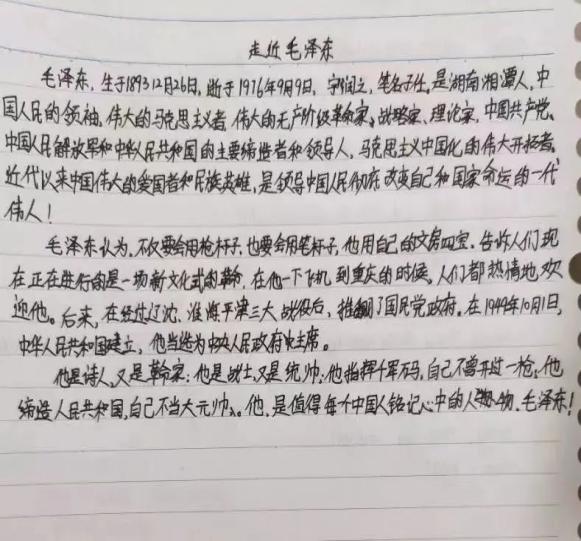 走近毛泽东
毛泽东，生于1893 12月26日，逝于1976年9月9日，字润之，笔名子任，是湖南湘潭人，中
国人民的领袖，伟大的马克思主义者，伟大的无产阶级革命家、战略家、理论家，中国共产党、
中国人民解放军和中华人民共和国的主要缔造者和领导人，马克思主义中国化的伟大开拓者，
近代以来中国伟大的爱国者和民族英雄，是领导中国人民彻底改变自己和国家命运的一代
伟人！
毛泽东认为，不仅要会用枪杆子，也要会用笔杆子，他用自己的文房四宝，告诉人们现
在正在进行的是一场新文化式的革命，在他一下飞机到重庆的时候，人们都热情地欢
迎他。后来，在经过辽沈、淮海平津三大战役后，推翻了国民党政府。在1949年10月1日，
中华人民共和国建立，他当选为中央人民政府中主席。
他是诗人，又是革命家；他是战士，又是统帅；他指挥千军万马，自己不曾开过一枪；他
缔造人民共和国，自己不当大元帅。他，是值得每个中国人铭记心中的人物，毛泽东！